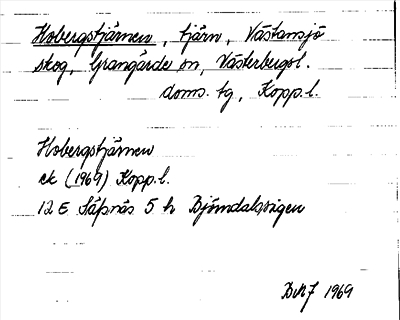 Hobergstjärnen, tjärn, Västansjö
skog, Grangärde sn, Västerbergsl.
doms. tg, Kopp.l.
Hobergstjärnen
ek (1969) Kopp.l.
12 E Säfsnäs 5 h Björndalsvigen
1969